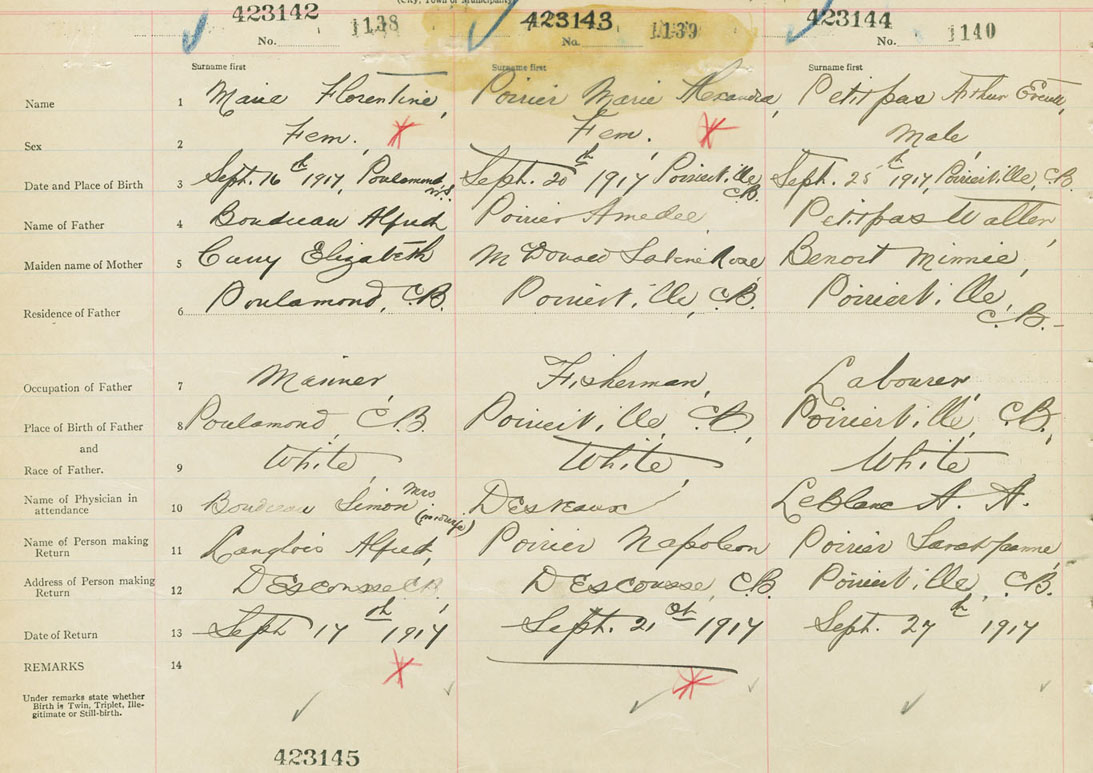 (City, Town or Municipality)
423142 423143 423144
No. 1138 No. 1139 No. 1140
Surname first Surname first Surname first
Name 1 Marie Florentine, Poirier Marie Alexandra, Petitpas Arthur Everett,
Sex 2 Fem. Fem. Male,
Date and Place of Birth 3 Sept. 16th 1917, Poulamond, N.S. Sept. 20th 1917 Poirierville, C.B. Sept. 25th 1917, Poirierville, C.B.
Name of Father 4 Boudreau Alfred Poirier Amedee, Petitpas Walter,
Maiden name of Mother 5 Curry Elizabeth McDonald Sabine Rose Benoit Minnie,
Residence of Father 6 Poulamond, C.B. Poirierville, C.B. Poirierville, C.B.
Occupation of Father 7 Mariner, Fisherman, Labourer,
Place of Birth of Father 8 Poulamond, C.B. Poirierville, C.B., Poirierville, C.B.,
and
Race of Father. 9 White, White White,
Name of Physician in attendance 10 Boudreau Simon Mrs (midwife) Desveaux LeBlanc A. A.
Name of Person making Return 11 Langlois Alfred, Poirier Napoleon Poirier Sarah Jeanne,
Address of Person making Return 12 D'Escousse C.B., D'Escousse, C.B. Poirierville, C.B.
Date of Return 13 Sept 17th 1917 Sept. 21st 1917 Sept. 27th 1917
REMARKS 14
Under remarks state whether
Birth is Twin, Triplet, Ille-
gitimate or Still-birth.
423145